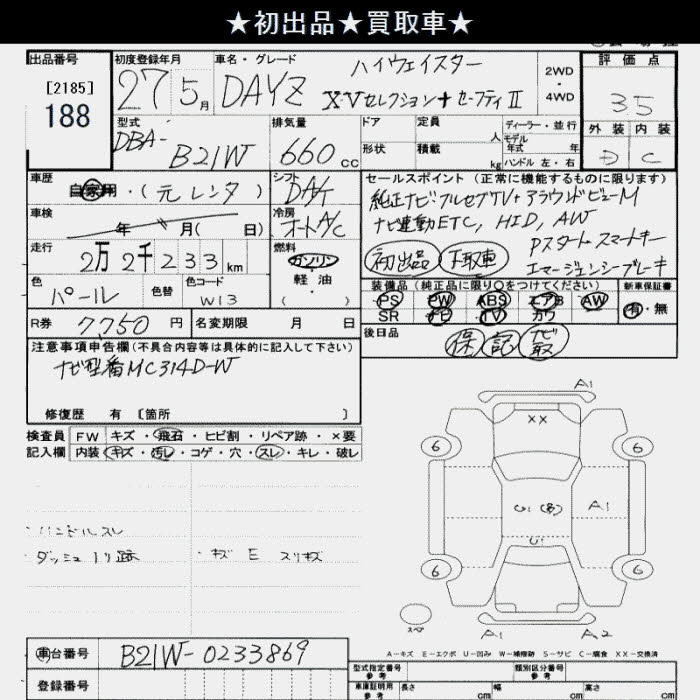 ★初出品★買取車★
出品番号 初度登録年月 車名・グレード ハイウェイスター 2WD・4WD 評価点
[2185] 188 27 5月 DAYZ X・Vセレクション+セーフティII 35
型式 DBA-B21W 排気量 660cc ドア 定員 人 ディーラー・並行 外装 内装
形状 積載 kg モデル年式 年 ハンドル 左・右 D C
車歴 自家用・(元レンタ) シフト DAT セールスポイント(正常に機能するものに限ります)
車検 年 月( 日) 冷房 オートA/C 純正ナビ フルセグTV+アラウンドビューM
ナビ連動ETC, HID, AW
走行 2万2千233km 燃料 ガソリン・軽油・( ) 初出品 下取車 Pスタート スマートキー
エマージェンシーブレーキ
色 パール 色替 色コード W13 装備品(純正品に限り○をつけてください) 新車保証書
PS PW ABS エアB AW 有・無
SR ナビ TV カワ
R券 7,750円 名変期限 月 日 後日品 保 記 ナビ取
注意事項申告欄(不具合内容等は具体的に記入して下さい)
ナビ型番MC314D-W
修復歴 有 〔箇所 〕
検査員記入欄 FW キズ・飛石・ヒビ割・リペア跡・×要
内装 キズ・汚レ・コゲ・穴・スレ・キレ・破レ
ハンドルスレ
ダッシュ 跡 ・キズ E スリキズ
A1
XX
6 6
U1 A1
U1
6 6
スペ A1 A2
A-キズ E-エクボ U-凹み W-補修跡 S-サビ C-腐食 XX-交換済
車台番号 B21W-0233869
登録番号
型式指定番号 参考 類別区分番号 参考
車庫証明用 参考 長さ cm 幅 cm 高さ cm